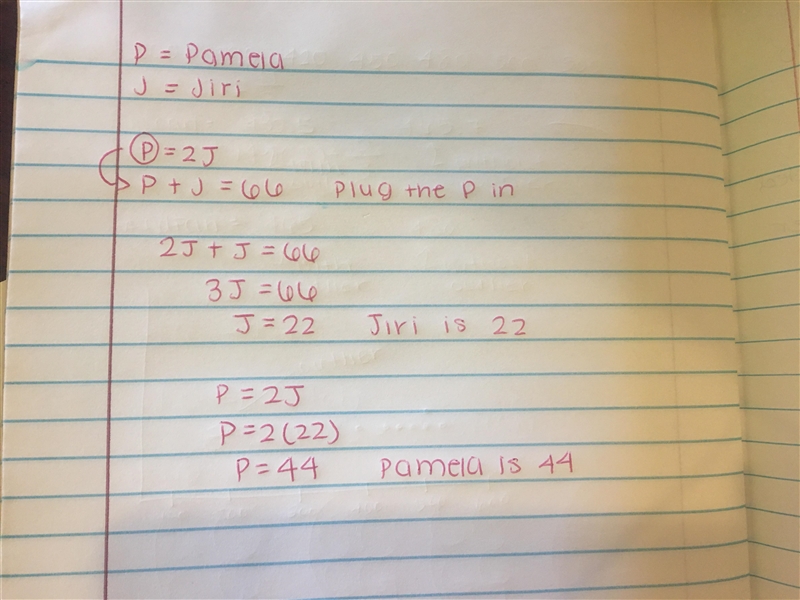 P = Pamela
J = Jiri
P = 2J
P + J = 66 Plug the P in
2J + J = 66
3J = 66
J = 22 Jiri is 22
P = 2J
P = 2(22)
P = 44 Pamela is 44